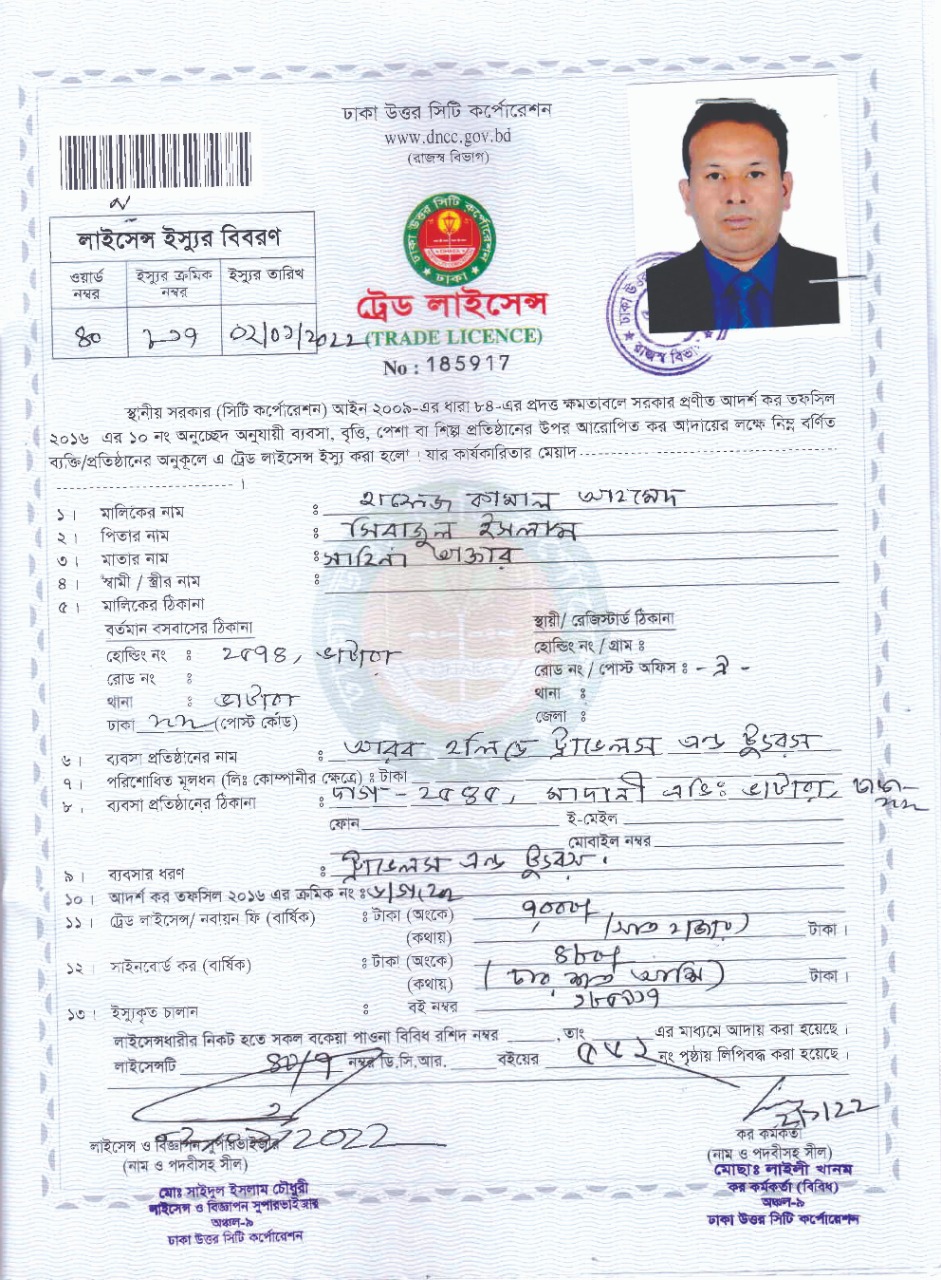 ঢাকা উত্তর সিটি কর্পোরেশন
www.dncc.gov.bd
(রাজস্ব বিভাগ)
লাইসেন্স ইস্যুর বিবরণ
ওয়ার্ড নম্বর
ইস্যুর ক্রমিক নম্বর
ইস্যুর তারিখ
৪০
ঢাকা উত্তর সিটি কর্পোরেশন
ঢাকা
ট্রেড লাইসেন্স
(TRADE LICENCE)
No : 185917
স্থানীয় সরকার (সিটি কর্পোরেশন) আইন ২০০৯-এর ধারা ৮৪-এর প্রদত্ত ক্ষমতাবলে সরকার প্রণীত আদর্শ কর তফসিল
২০১৬ এর ১০ নং অনুচ্ছেদ অনুযায়ী ব্যবসা, বৃত্তি, পেশা বা শিল্প প্রতিষ্ঠানের উপর আরোপিত কর আদায়ের লক্ষে নিম্ন বর্ণিত
ব্যক্তি/প্রতিষ্ঠানের অনুকূলে এ ট্রেড লাইসেন্স ইস্যু করা হলো ঃ যার কার্যকারিতার মেয়াদ
১। মালিকের নাম ঃ হাফেজ কামাল আহমেদ
২। পিতার নাম ঃ সিরাজুল ইসলাম
৩। মাতার নাম ঃ সাহিনা আক্তার
৪। স্বামী / স্ত্রীর নাম ঃ
৫। মালিকের ঠিকানা
বর্তমান বসবাসের ঠিকানা
হোল্ডিং নং ঃ ২৫৭৪, ভাটারা
রোড নং ঃ
থানা ঃ ভাটারা
ঢাকা (পোস্ট কোড)
স্থায়ী/ রেজিস্টার্ড ঠিকানা
হোল্ডিং নং / গ্রাম ঃ
রোড নং / পোস্ট অফিস ঃ - ঐ -
থানা ঃ
জেলা ঃ
৬। ব্যবসা প্রতিষ্ঠানের নাম ঃ আরব হলিডে ট্রাভেলস এন্ড ট্যুরস
৭। পরিশোধিত মূলধন (লিঃ কোম্পানীর ক্ষেত্রে) ঃ টাকা
৮। ব্যবসা প্রতিষ্ঠানের ঠিকানা ঃ দাগ - ২৫৪৫, মাদানী এভিঃ ভাটারা, ঢাকা-
ফোন ই-মেইল
মোবাইল নম্বর
৯। ব্যবসার ধরণ ঃ ট্রাভেলস এন্ড ট্যুরস।
১০। আদর্শ কর তফসিল ২০১৬ এর ক্রমিক নং ঃ
১১। ট্রেড লাইসেন্স/ নবায়ন ফি (বার্ষিক) ঃ টাকা (অংকে) ৭০০০/
(কথায়) (সাত হাজার) টাকা।
১২। সাইনবোর্ড কর (বার্ষিক) ঃ টাকা (অংকে) ৪৮০/
(কথায়) (চার শত আশি) টাকা।
১৩। ইস্যুকৃত চালান ঃ বই নম্বর
লাইসেন্সধারীর নিকট হতে সকল বকেয়া পাওনা বিবিধ রশিদ নম্বর ,তাং এর মাধ্যমে আদায় করা হয়েছে।
লাইসেন্সটি নম্বর ডি.সি.আর. বইয়ের ৫৭২ নং পৃষ্ঠায় লিপিবদ্ধ করা হয়েছে।
লাইসেন্স ও বিজ্ঞাপন সুপারভাইজার
(নাম ও পদবীসহ সীল)
মোঃ সাইদুল ইসলাম চৌধুরী
লাইসেন্স ও বিজ্ঞাপন সুপারভাইজার
অঞ্চল-৯
ঢাকা উত্তর সিটি কর্পোরেশন
কর কর্মকর্তা
(নাম ও পদবীসহ সীল)
মোছাঃ লাইলী খানম
কর কর্মকর্তা (বিবিধ)
অঞ্চল-৯
ঢাকা উত্তর সিটি কর্পোরেশন